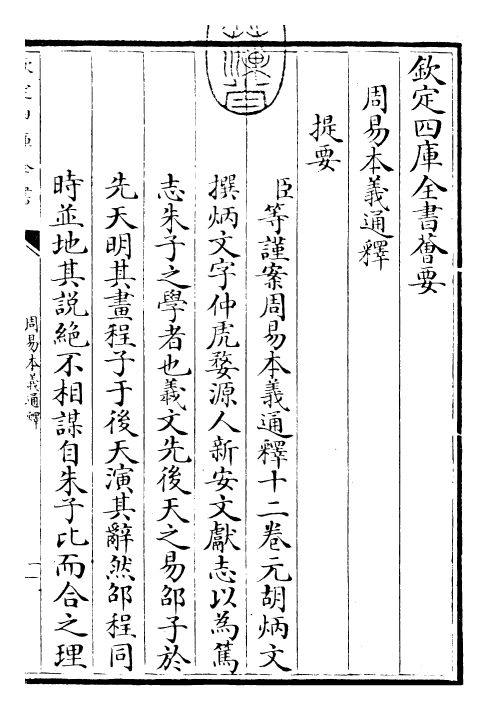 欽定四庫全書薈要
周易本義通釋
提要
臣等謹案周易本義通釋十二卷元胡炳文
撰炳文字仲虎婺源人新安文獻志以為篤
志朱子之學者也羲文先後天之易邵子於
先天明其畫程子于後天演其辭然邵程同
時並地其説絶不相謀自朱子比而合之理
周易本義通釋
一